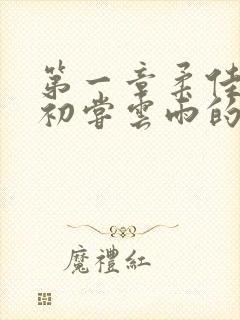 第一章柔佳
初嘗雲雨的
魔禮紅